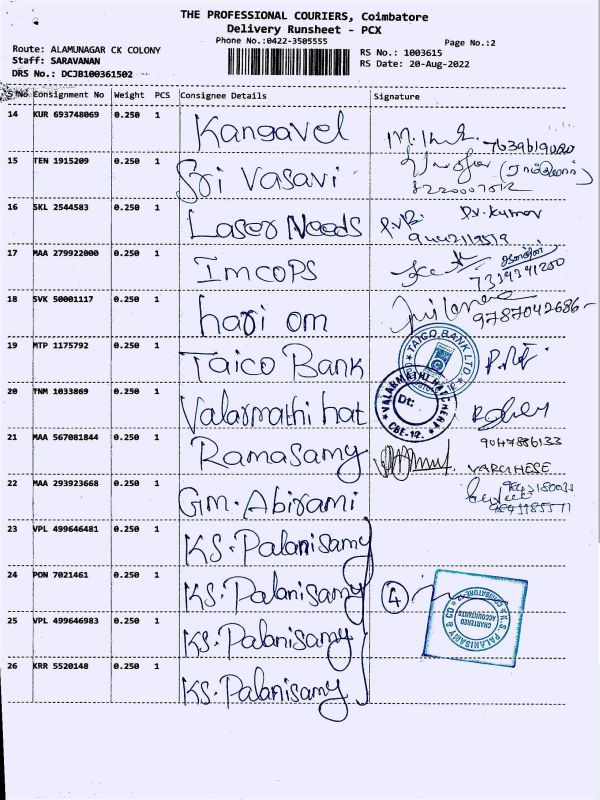 THE PROFESSIONAL COURIERS, Coimbatore
Delivery Runsheet - PCX
Phone No.:0422-3505555
Page No.:2
Route: ALAMUNAGAR CK COLONY
Staff: SARAVANAN
DRS No.: DCJB100361502
RS No.: 1003615
RS Date: 20-Aug-2022
S No Consignment No Weight PCS Consignee Details Signature
14 KUR 693748069 0.250 1 Kangavel 7639619020
15 TEN 1915209 0.250 1 Sri Vasavi
8220007512
16 SKL 2544583 0.250 1 Laser Needs P.V. Kumar
9442119519
17 MAA 279922000 0.250 1 IMCOPS
7339341200
18 SVK 50001117 0.250 1 hari om
9787042686
19 MTP 1175792 0.250 1 Taico Bank TAICO BANK LTD
20 TNM 1033869 0.250 1 Valarmathi hat VALARMATHI HATCHERY
Dt:
CBE-12.
21 MAA 567081844 0.250 1 Ramasamy 9047886133
VARGHESE
22 MAA 293923668 0.250 1 GM. Abirami
23 VPL 499646481 0.250 1 KS. Palanisamy
24 PON 7021461 0.250 1 KS. Palanisamy 4
25 VPL 499646983 0.250 1 KS. Palanisamy K.S PALANISAMY & CO
CHARTERED
ACCOUNTANTS
COIMBATORE
26 KRR 5520148 0.250 1 KS. Palanisamy